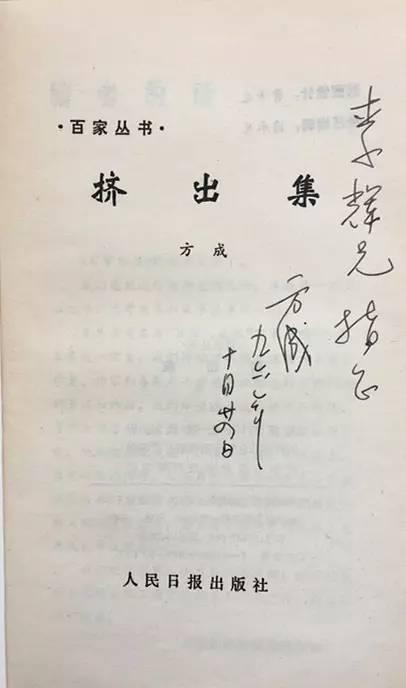 ·百家丛书·
挤出集
方成
李辉兄 指正
方成
十月廿四日
人民日报出版社